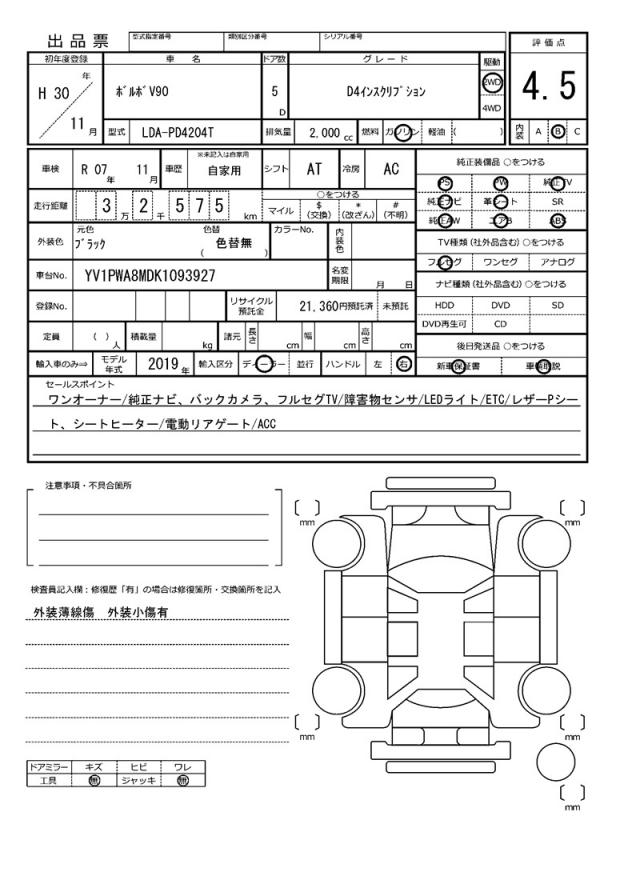 出品票
型式指定番号
類別区分番号
シリアル番号
評価点
初年度登録
車名
ドア数
グレード
駆動
H 30 年
11 月
ボルボV90
5 D
D4インスクリプション
2WD
4WD
4.5
型式
LDA-PD4204T
排気量
2,000 cc
燃料
ガソリン
軽油
( )
内装
A
B
C
車検
R 07 年 11 月
車歴
※未記入は自家用
自家用
シフト
AT
冷房
AC
純正装備品 ○をつける
PS
PW
純正TV
純正ナビ
革シート
SR
純正AW
エアB
ABS
走行距離
3 万 2 千 5 7 5 km
○をつける
マイル
$ (交換)
* (改ざん)
# (不明)
外装色
元色
ブラック
色替
色替無
( )
カラーNo.
内装色
TV種類 (社外品含む) ○をつける
フルセグ
ワンセグ
アナログ
車台No.
YV1PWA8MDK1093927
名変期限
月 日
ナビ種類 (社外品含む) ○をつける
HDD
DVD
SD
DVD再生可
CD
登録No.
リサイクル預託金
21,360円預託済
未預託
定員
( ) 人
積載量
kg
諸元
長さ
cm
幅
cm
高さ
cm
後日発送品 ○をつける
新車保証書
車輌取説
輸入車のみ⇒
モデル年式
2019 年
輸入区分
ディーラー
並行
ハンドル
左
右
セールスポイント
ワンオーナー/純正ナビ、バックカメラ、フルセグTV/障害物センサ/LEDライト/ETC/レザーPシー
ト、シートヒーター/電動リアゲート/ACC
注意事項・不具合箇所
検査員記入欄：修復歴「有」の場合は修復箇所・交換箇所を記入
外装薄線傷 外装小傷有
mm
mm
mm
mm
mm
ドアミラー
キズ
ヒビ
ワレ
工具
無
ジャッキ
無